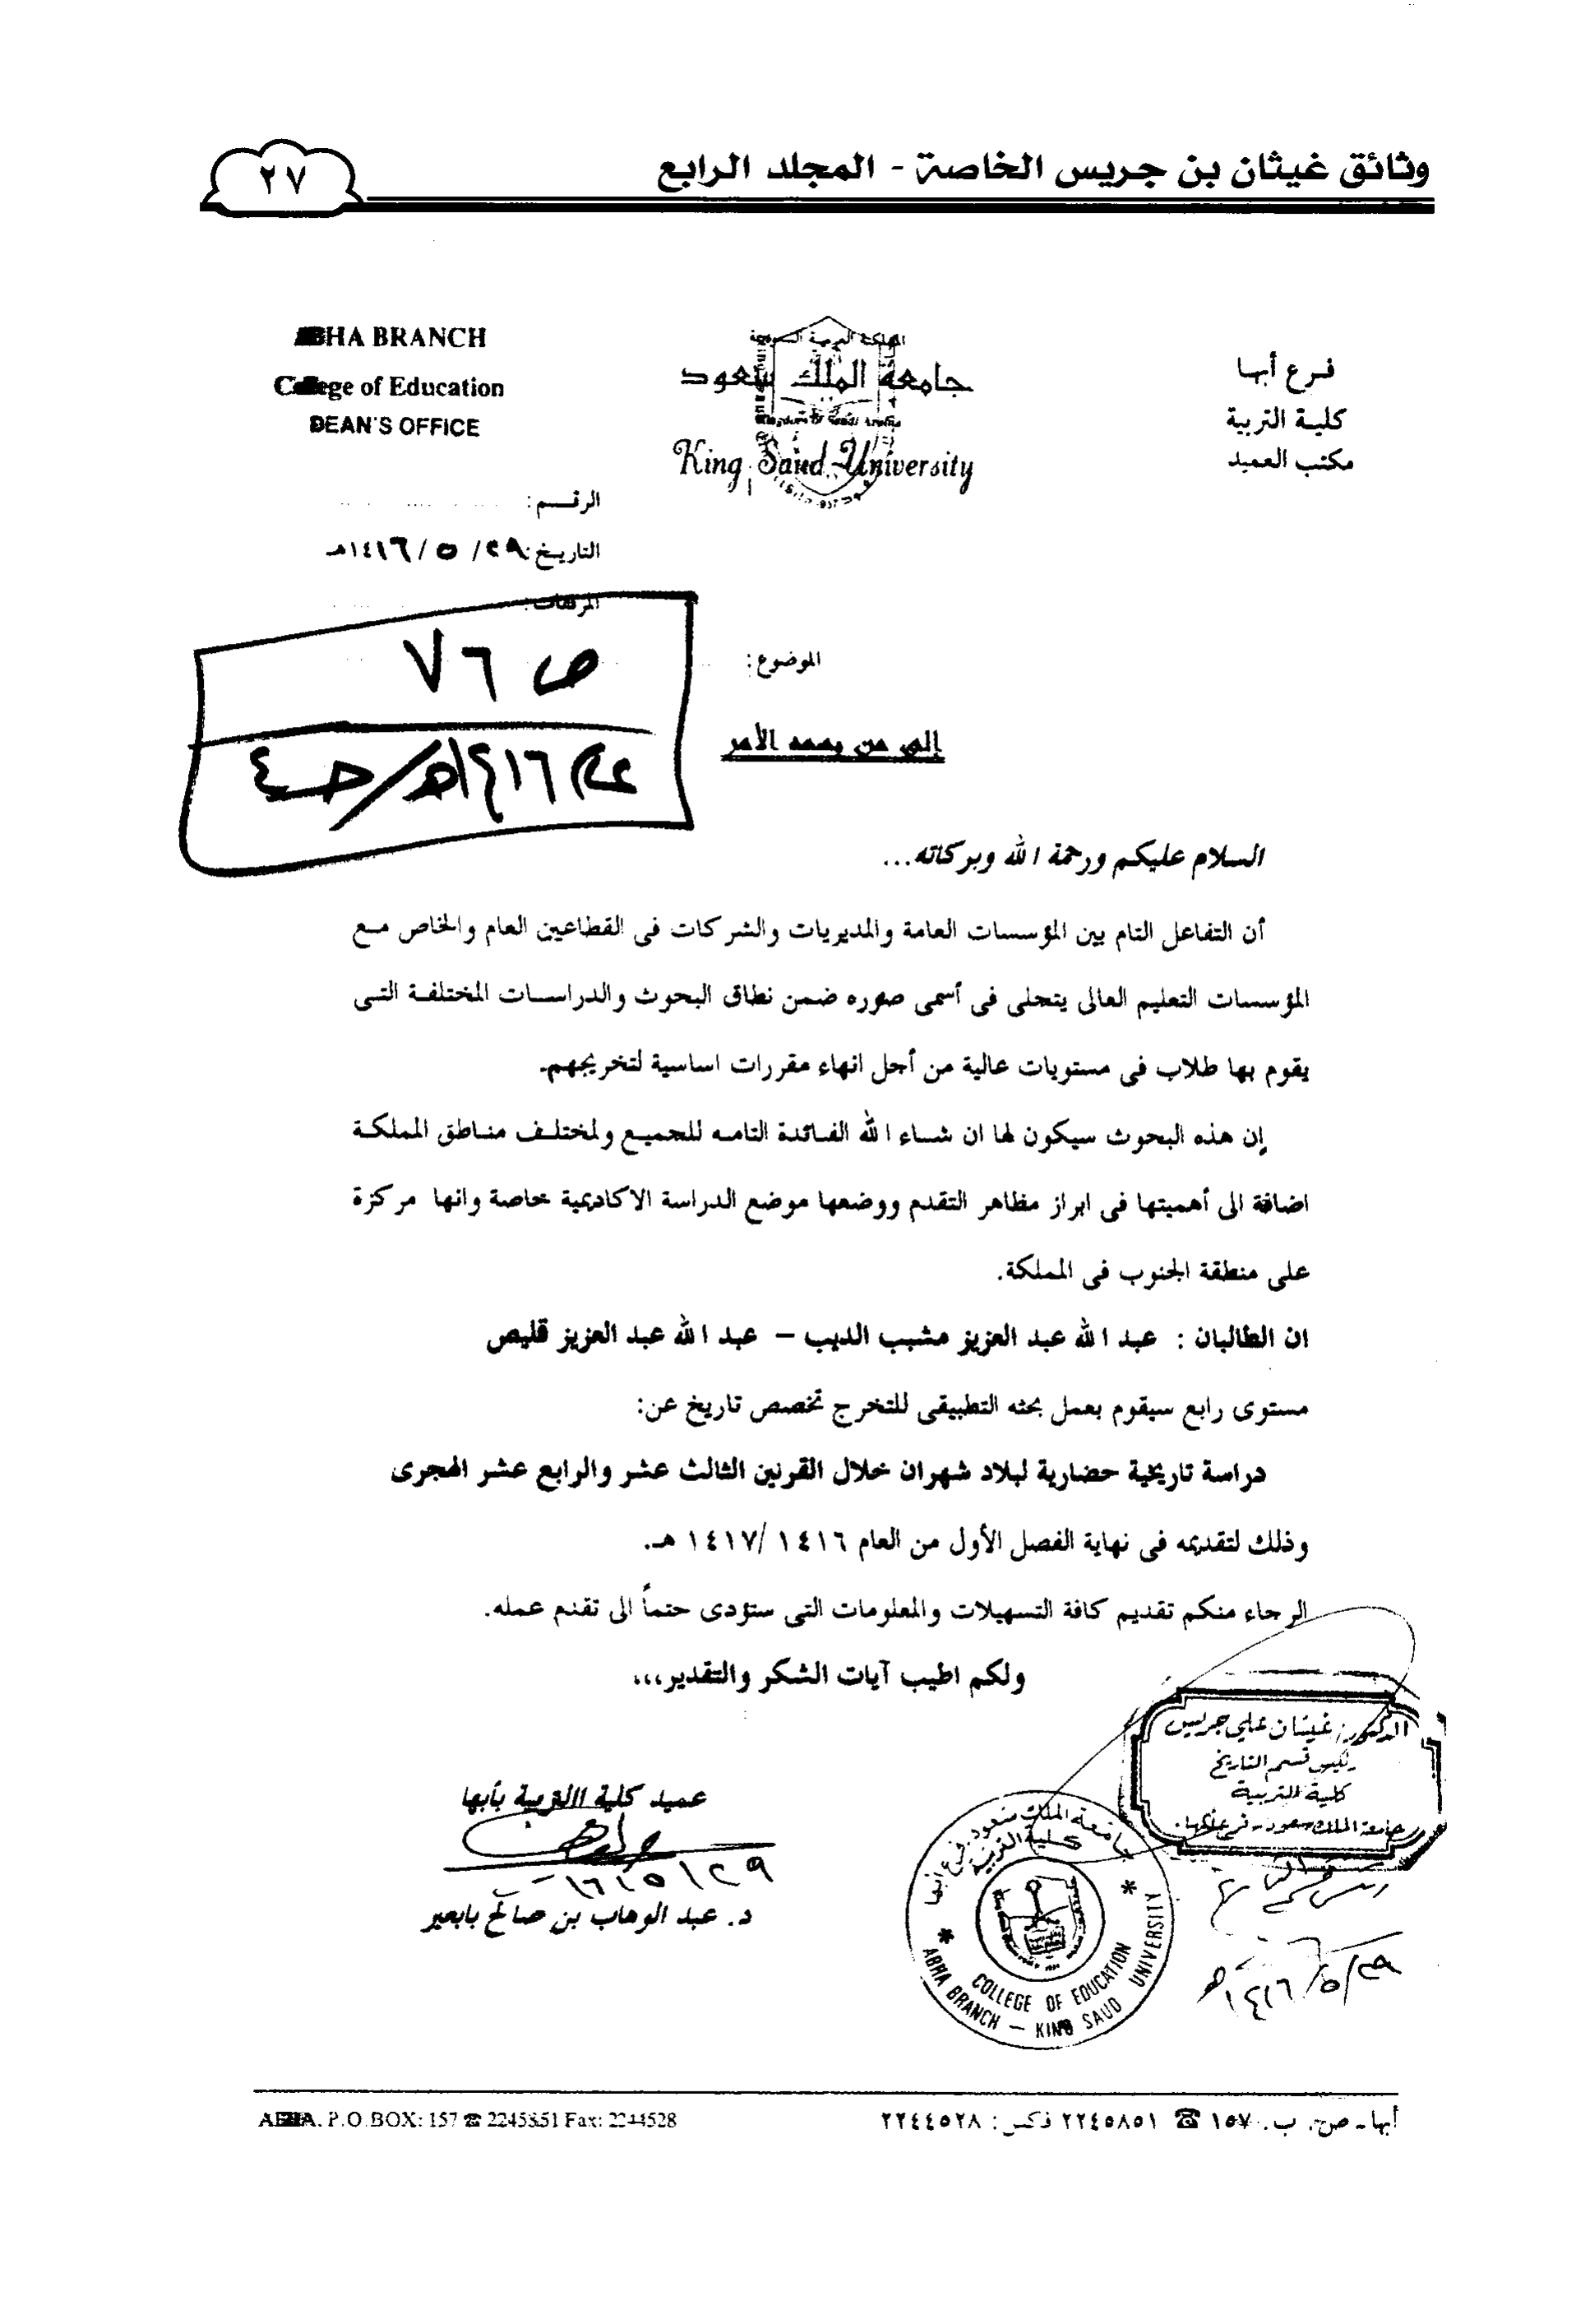 وثائق غيثان بن جريس الخاصة - المجلد الرابع
٢٧
فرع أبها
كلية التربية
مكتب العميد
المملكة العربية السعودية
جامعة الملك سعود
Kingdom of Saudi Arabia
King Saud University
ABHA BRANCH
College of Education
DEAN'S OFFICE
الرقم:
التاريخ: ٢٩/ ٥ / ١٤١٦هـ
المرفقات:
الموضوع:
ص ٧٦
عام ١٤١٦هـ/حـ٤
إلى من يهمه الأمر
السلام عليكم ورحمة الله وبركاته...
أن التفاعل التام بين المؤسسات العامة والمديريات والشركات فى القطاعين العام والخاص مع
المؤسسات التعليم العالى يتجلى فى أسمى صوره ضمن نطاق البحوث والدراسات المختلفة التى
يقوم بها طلاب فى مستويات عالية من أجل انهاء مقررات اساسية لتخريجهم.
إن هذه البحوث سيكون لها ان شاء الله الفائدة التامه للجميع ولمختلف مناطق المملكة
اضافة الى أهميتها فى ابراز مظاهر التقدم ووضعها موضع الدراسة الاكاديمية خاصة وانها مركزة
على منطقة الجنوب فى المملكة.
ان الطالبان : عبد الله عبد العزيز مشبب الديب – عبد الله عبد العزيز قليص
مستوى رابع سيقوم بعمل بحثه التطبيقى للتخرج تخصص تاريخ عن:
دراسة تاريخية حضارية لبلاد شهران خلال القرنين الثالث عشر والرابع عشر الهجرى
وذلك لتقديمه فى نهاية الفصل الأول من العام ١٤١٦ /١٤١٧ هـ.
الرجاء منكم تقديم كافة التسهيلات والمعلومات التى ستؤدى حتماً الى تقدم عمله.
ولكم اطيب آيات الشكر والتقدير،،،
الدكتور: غيثان علي جريس
رئيس قسم التاريخ
كلية التربية
جامعة الملك سعود - فرع أبها.
رئيس قسم التاريخ
٢٩/٥/١٤١٦هـ
جامعة الملك سعود. فرع أبها
كلية التربية
COLLEGE OF EDUCATION
ABHA BRANCH – KING SAUD UNIVERSITY
عميد كلية االتربية بأبها
٢٩/٥/١٦
د. عبد الوهاب بن صالح بابعير
أبها - ص. ب. ١٥٧ ☎ ٢٢٤٥٨٥١ فكس: ٢٢٤٤٥٢٨
ABHA. P.O.BOX: 157 ☎ 2245851 Fax: 2244528